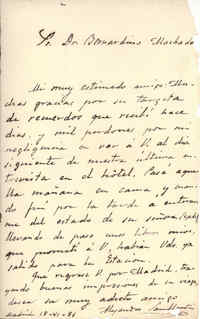 Sr. Dr. Bernardino Machado
Mi muy estimado amigo: Mu-
chas gracias por su tarjeta
de recuerdos que recibí hace
días, y mil perdones por mi
negligencia en ver á V. al día
siguiente de nuestra última en-
trevista en el hotel. Pasé aque-
lla mañana en cama, y cuan-
do fuí por la tarde a enterar-
me del estado de su señora,
llevando de paso unos libros míos,
que prometí á V., habían Vds. ya
salido para la Estación.
Que regrese V. por Madrid, tra-
yendo buenas impresiones de su viaje,
desea su muy adicto amigo
Madrid